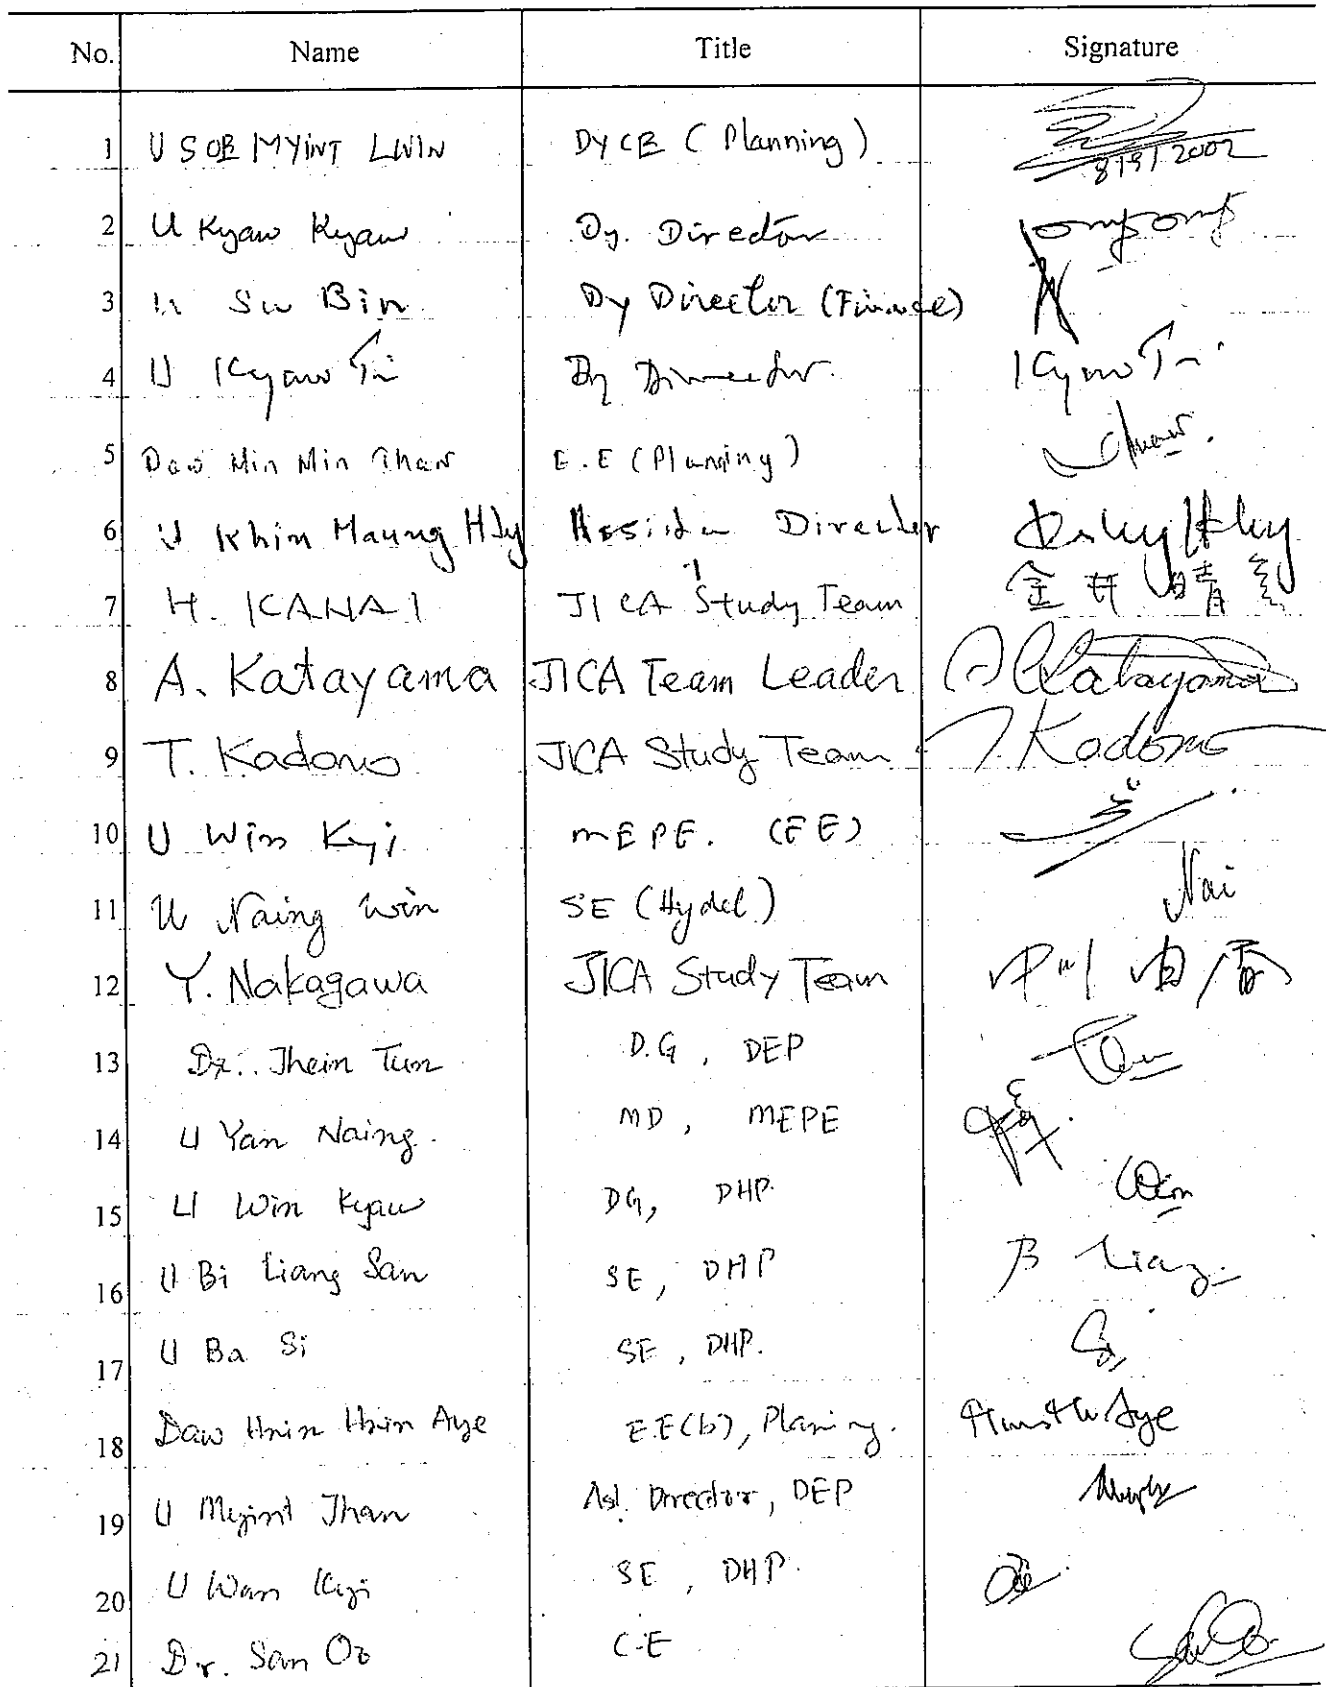 No. Name Title Signature
1 U SOE MYINT LWIN DY CE (Planning) 8/9/2002
2 U Kyaw Kyaw Dy. Director
3 U Su Bin Dy Director (Finance)
4 U Kyaw Tri Dy Director.
5 Daw Min Min Thaw E.E (Planning)
6 U Khin Maung Director
7 H. KANAI JICA Study Team 金井晴
8 A. Katayama JICA Team Leader A Katayama
9 T. Kadono JICA Study Team T. Kadono
10 U Win Kyi MEPE. (EE)
11 U Naing Win SE (Hydel) Nai
12 Y. Nakagawa JICA Study Team 中川
13 Dr. Thein Tun D.G, DEP
14 U Yan Naing. MD, MEPE
15 U Win Kyaw DG, DHP. Win
16 U Bi Liang San SE, DHP
17 U Ba Si SE, DHP.
18 Daw Hnin Hnin Aye E.E(b), Planing. Aye
19 U Myint Than Ast. Director, DEP
20 U Wan Kyi SE, DHP.
21 Dr. San Oo C.E